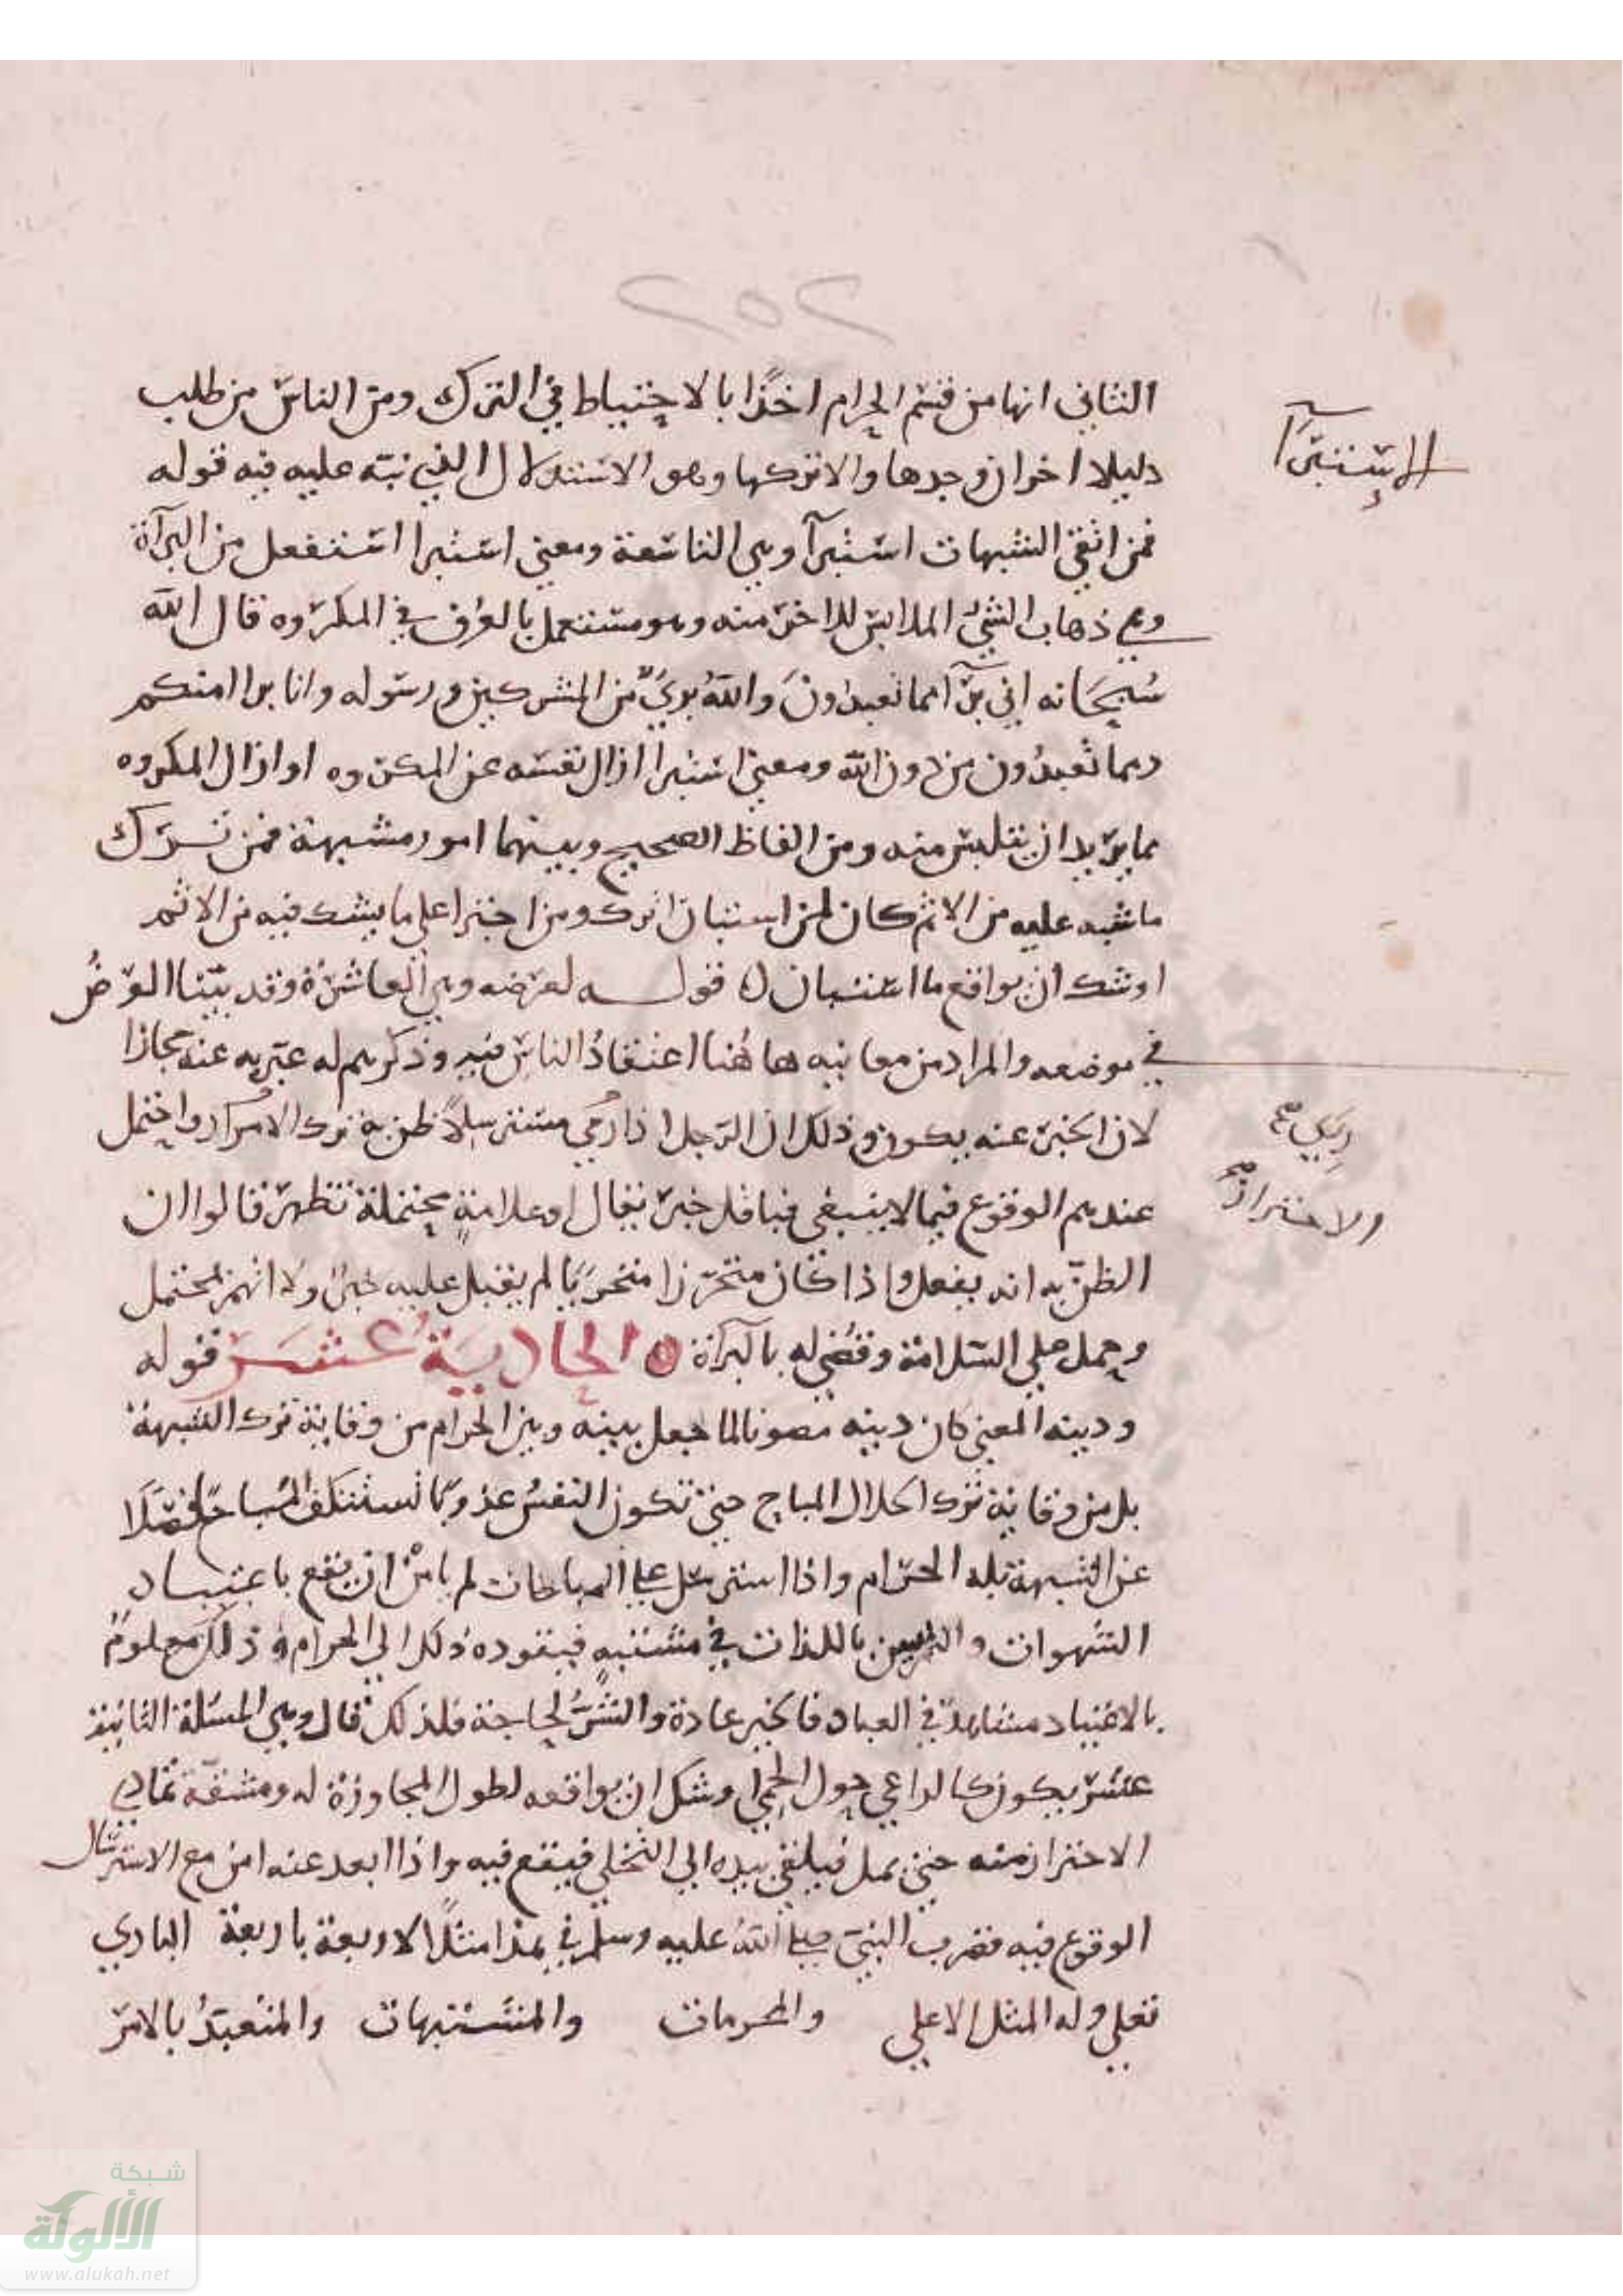 ٢٥٢
الثاني انها من قسم الحرام اخذا بالاحتياط في الترك ومن الناس من طلب
دليلا اخر ان وجدها والا تركها وهو الاستدلال الذي نبه عليه فيه قوله
فمن اتقى الشبهات استبرأ وهي التاسعة ومعنى استبرا استفعل من البرآة
وهي ذهاب الشيء الملابس للاخر منه وهو مستعمل بالعرف في المكروه قال الله
سبحانه اني برآ مما تعبدون والله بريء من المشركين ورسوله وانا براا منكم
ومما تعبدون من دون الله ومعنى استبرا ازال نفسه عن المكروه او ازال المكروه
مما يريد ان يتلبس منه ومن الفاظ الصحيح وبينهما امور مشبهة فمن ترك
ما شبه عليه من الاثم كان لمن استبان اترك ومن اجترا على ما يشك فيه من الاثم
اوشك ان يواقع ما استبان قوله لعرضه وهي العاشرة وقد بينا العرض
في موضعه والمراد من معانيه هاهنا اعتقاد الناس فيه وذكرهم له عبر به عنه مجازا
لان الخبر عنه يكون وذلك ان الرجل اذا رمي مسترسلا ظن به ترك الامرار واحتمل
عندهم الوقوع فيما لا ينبغي فباقل خبر يقال او علامة محتملة تظهر قالوا ان
الظن به انه يفعل واذا كان متحرزا متخربا لم يقبل عليه خبر ولا اتهم بمحتمل
وحمل على السلامة وقضي له بالبرآة الحادية عشر قوله
ودينه المعنى كان دينه مصونا لما جعل بينه وبين الحرام من وقاية ترك الشبهة
بل من وقاية ترك الحلال المباح حتى تكون النفس عذ وبما تستنكف المباح فضلا
عن الشبهة بله الحرام واذا استرسل على المباحات لم يامن ان يقع باعتياد
الشهوات والتمرين باللذات في مشتبه فيقوده ذلك الى الحرام وذلك معلوم
بالاعتياد مشاهد في العباد فالخير عادة والشر لجاجة فلذلك قال وهي المسئلة الثانية
عشر يكون كالراعي حول الحمى اوشك ان يواقعه لطول المجاوزة له ومشقة تمادي
الاحتراز منه حتى يمل فيلقي بيده الى التخلي فيقع فيه واذا ابعد عنه امن مع الاسترسال
الوقوع فيه فضرب النبي صلى الله عليه وسلم في هذا مثلا لاربعة باربعة الباري
تعلى وله المثل الاعلى والمحرمات والمتشبهات والمتعبد بالامر
الإستبرآ
والاحتراز
شبكة
الألوكة
www.alukah.net